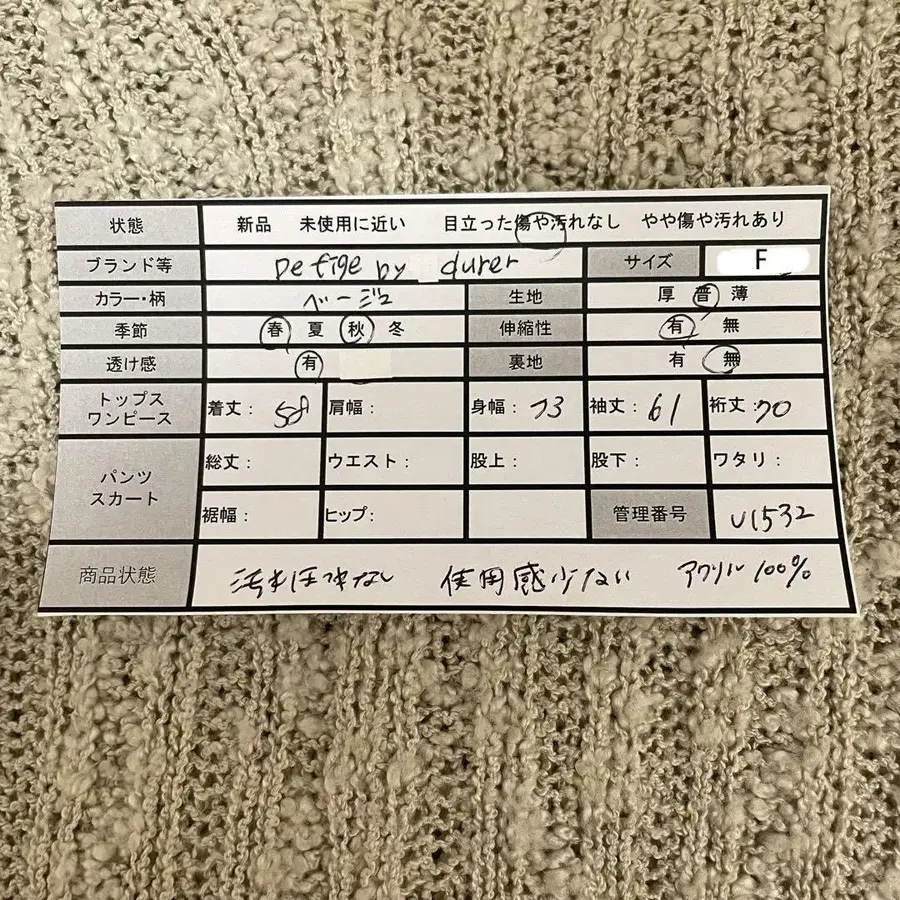 状態 新品 未使用に近い 目立った傷や汚れなし やや傷や汚れあり
ブランド等 De tige by durer サイズ F
カラー・柄 ベージュ 生地 厚 普 薄
季節 春 夏 秋 冬 伸縮性 有 無
透け感 有 裏地 有 無
トップス ワンピース 着丈: 58 肩幅: 身幅: 73 袖丈: 61 裄丈: 70
パンツ スカート 総丈: ウエスト: 股上: 股下: ワタリ:
裾幅: ヒップ: 管理番号 U1532
商品状態 汚れほつれなし 使用感少ない アクリル100%